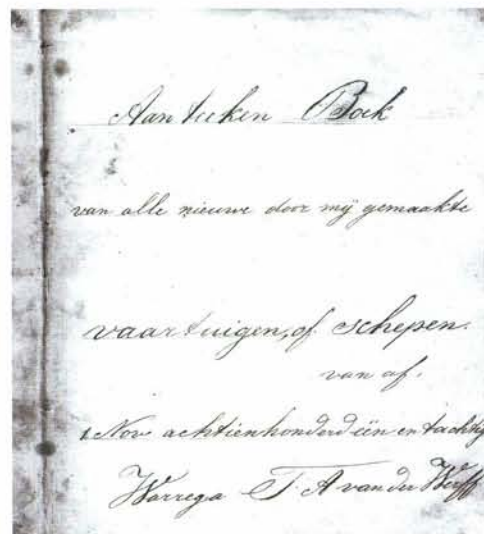 Aanteeken Boek
van alle nieuwe door mij gemaakte
vaartuigen, of schepen.
van af.
1 Nov achtienhonderd één en tachtig
Warrega T. A van der Werff